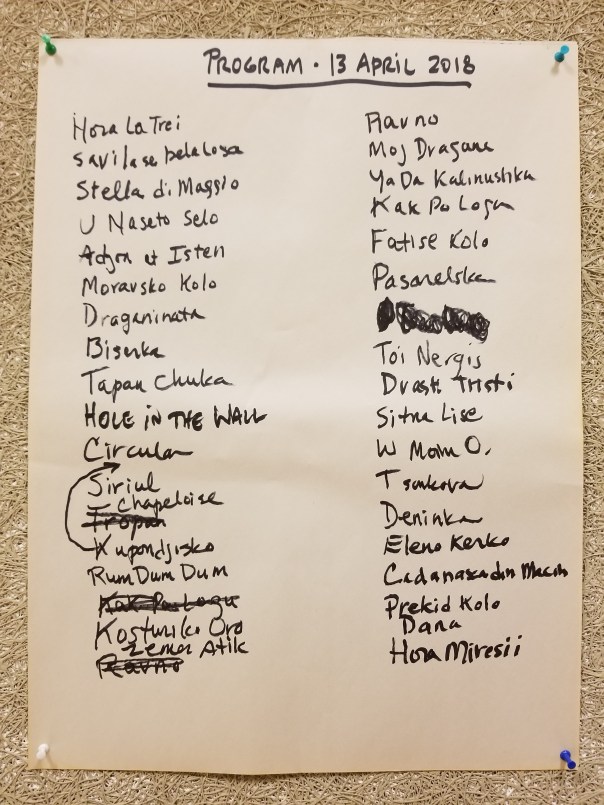 PROGRAM · 13 APRIL 2018
Hora La Trei
Savila se bela loza
Stella di Maggio
U Naseto Selo
Adjon az Isten
Moravsko Kolo
Draganinata
Biserka
Tapan Chuka
HOLE IN THE WALL
Circula
Siriul
Chapeloise
Tropan
Kupondjisko
Rum Dum Dum
Kak Po Logu
Kosturiko Oro
Zemer Atik
Ravno
Ravno
Moj Dragane
Ya Da Kalinushka
Kak Po Logu
Fatise Kolo
Pasarelska
Toi Nergis
Drasti Tristi
Sitna Lise
W Moim O.
Tsonkova
Deninka
Eleno Kerko
Cadanasadin Macih
Prekid Kolo
Dana
Hora Miresii